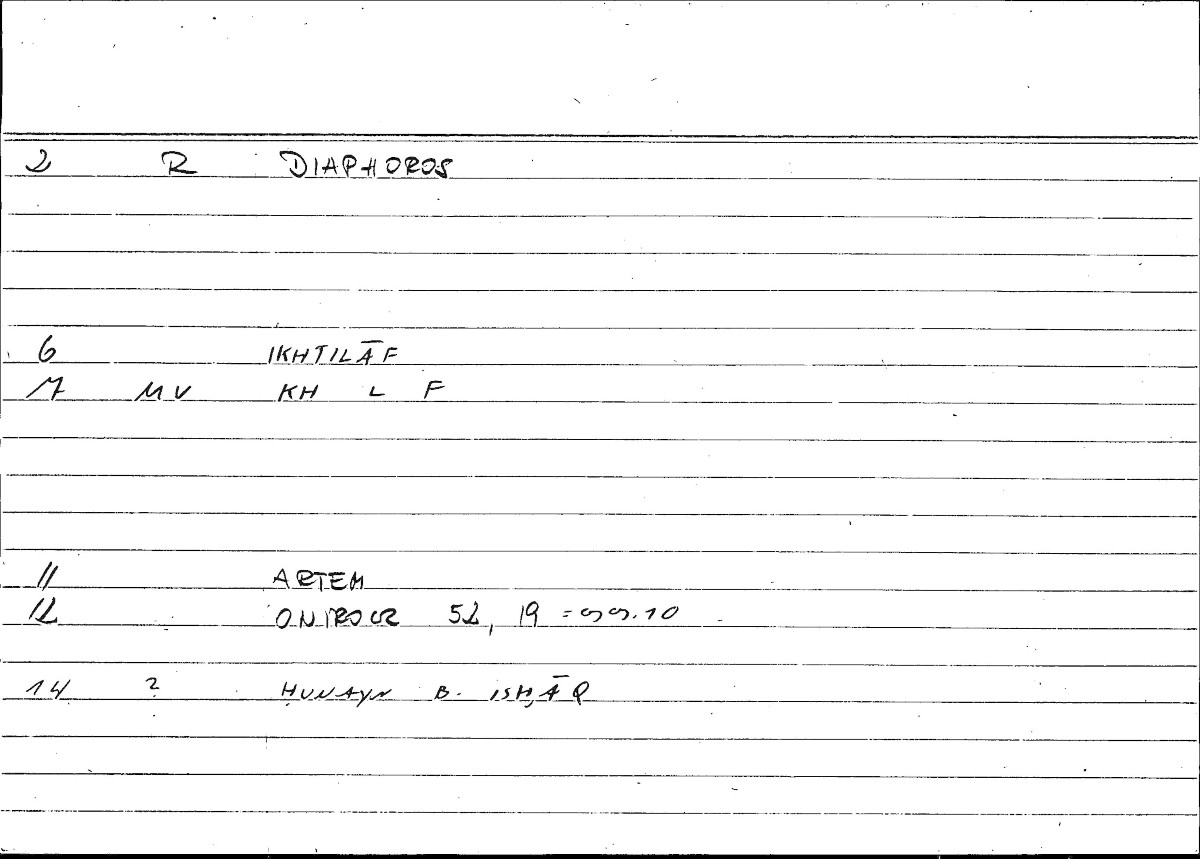 2 R DIAPHOROS
6 IKHTILĀF
7 MV KH L F
11 ARTEM
12 ONIROCR 52, 19 = 99.10
14 ? ḤUNAYN B. ISḤĀQ